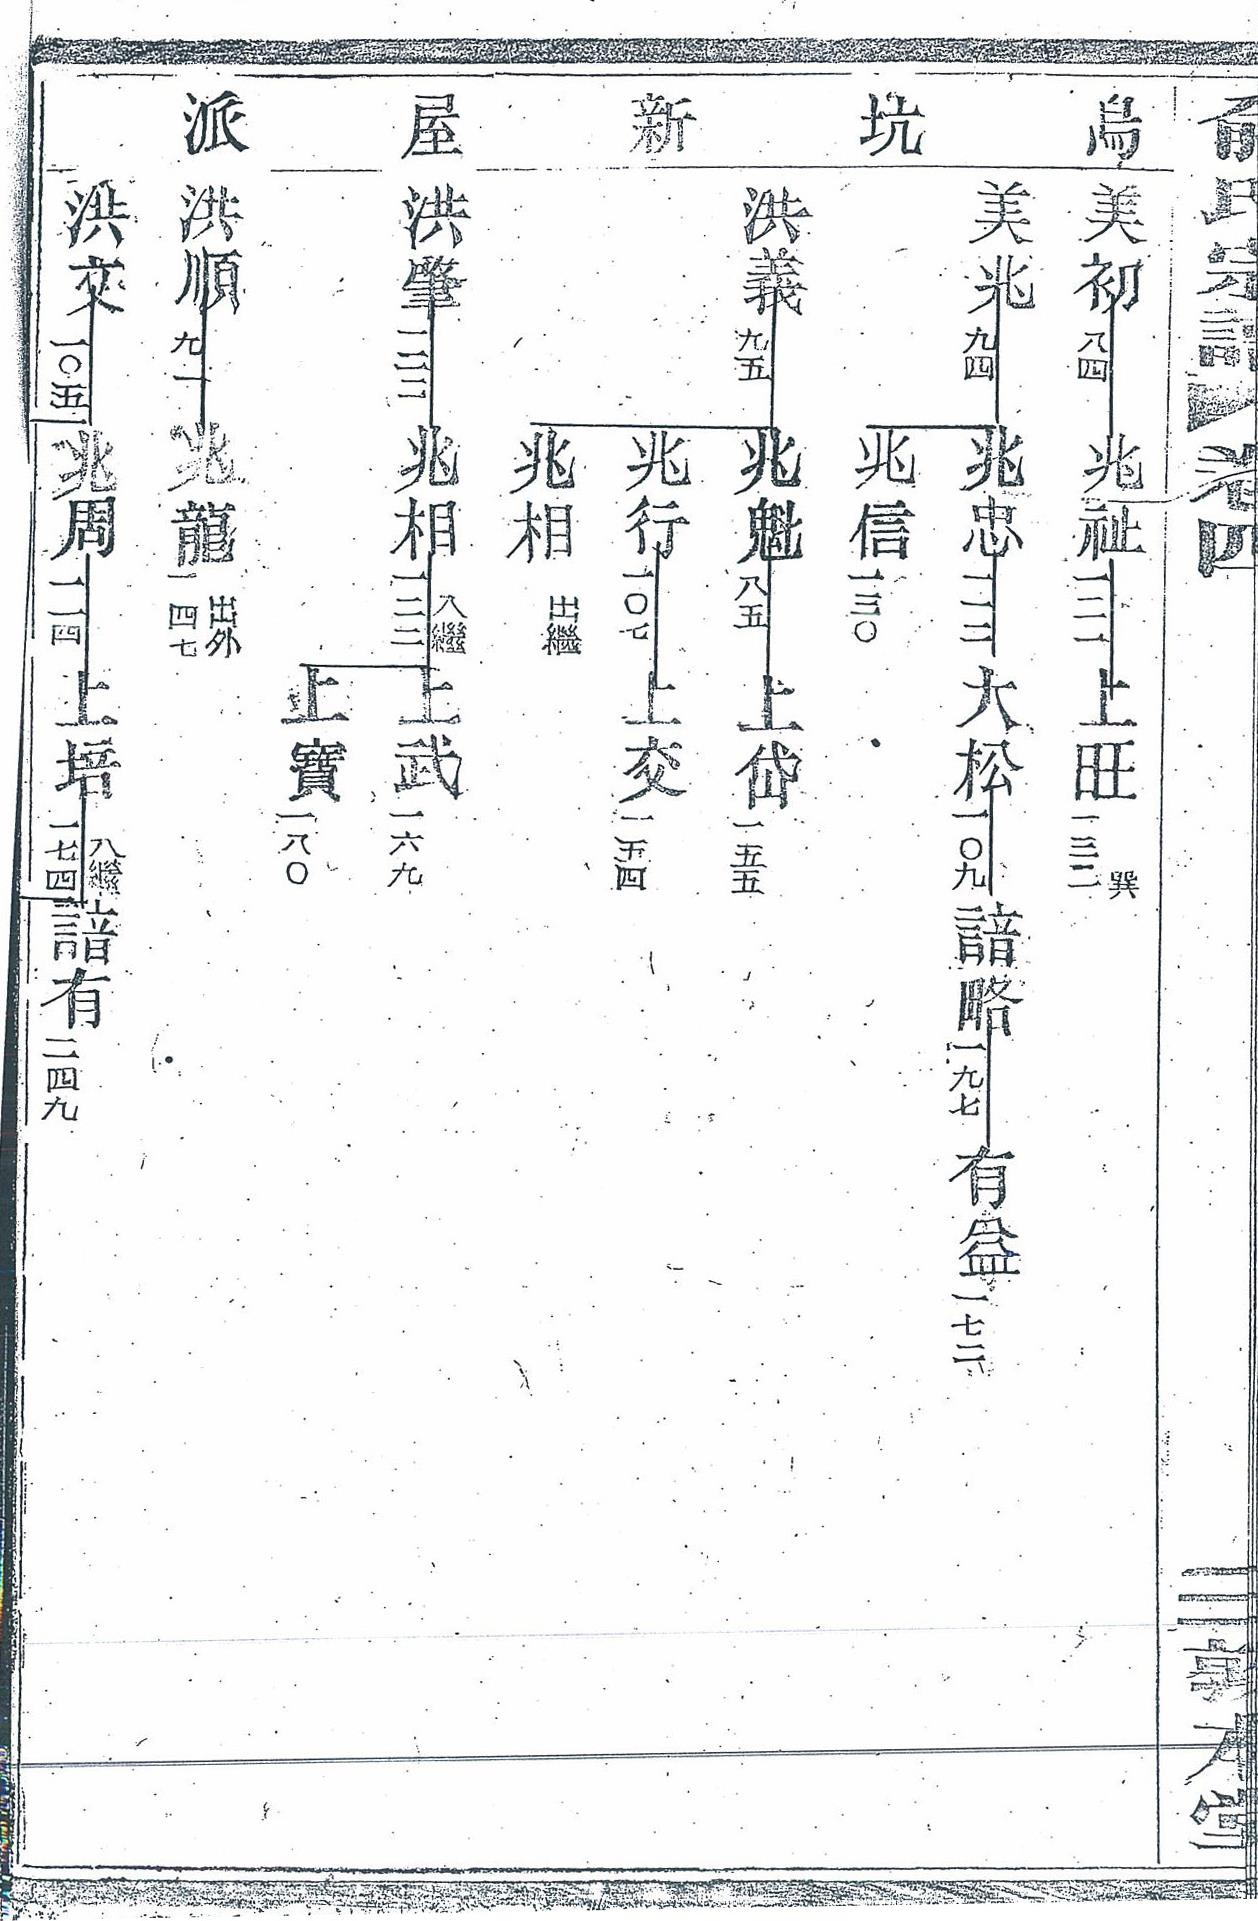 俞氏宗譜 卷四 三 敦本堂
烏坑新屋派
美初 八四 兆祉 一二一 上旺 一三二 巽
美兆 九四 兆忠 一一二 大松 一〇九 諳略 一九七 有益 一七二
兆信 一三〇
洪義 九五 兆魁 八五 上岱 一五五
兆行 一〇七 上交 一五四
兆相 出繼
洪肇 一二二 兆相 入繼 一三二 上武 一六九
上寶 一八〇
洪順 九一 兆龍 出外 一四七
洪來 一〇五 兆周 一一四 上培 入繼 一七四 諳有 二四九